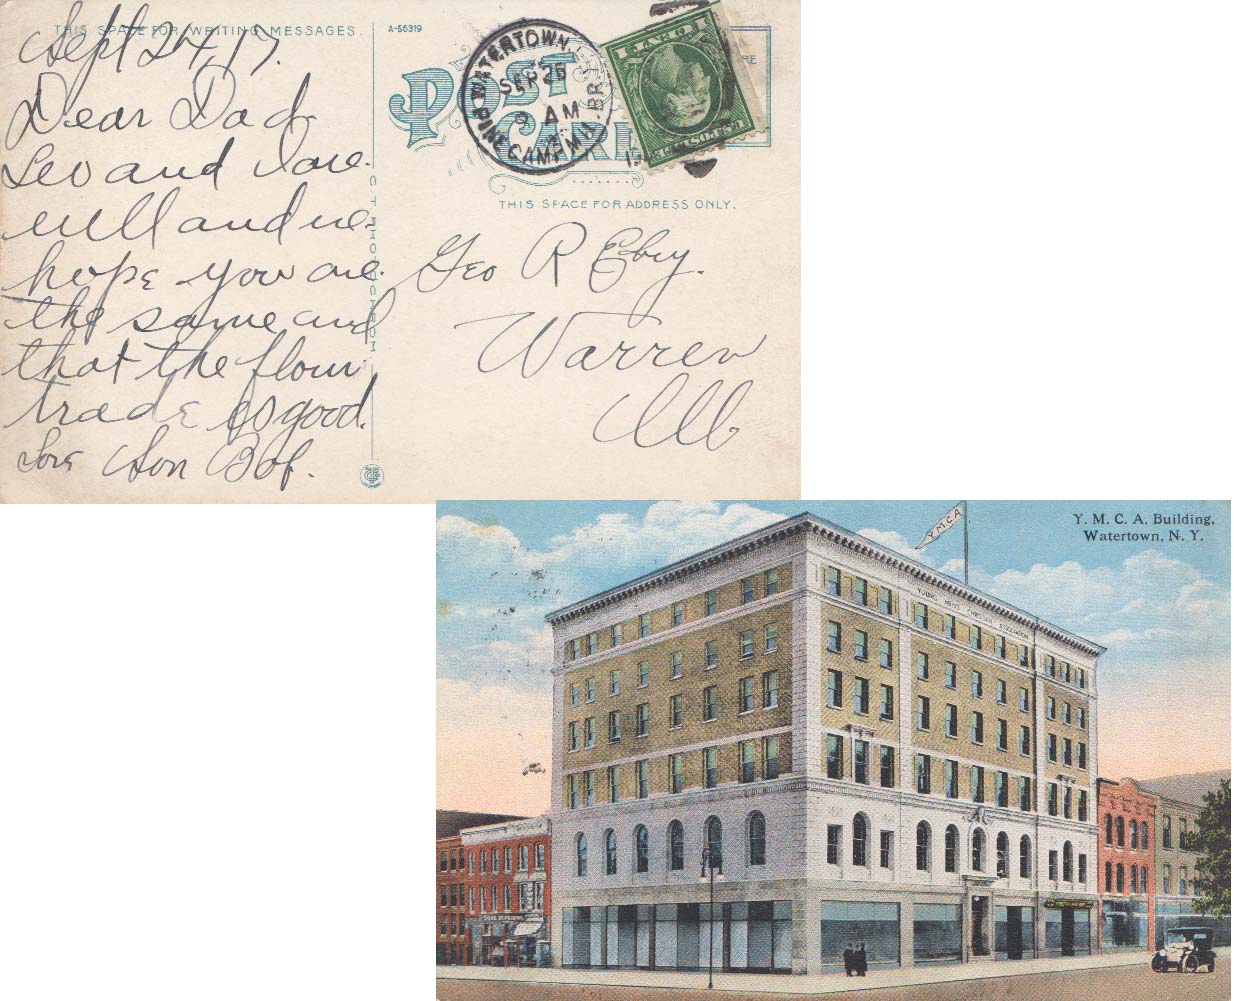 THIS SPACE FOR WRITING MESSAGES.
A-56319
Sept 24, 17.
Dear Dad
Leo and I are
well and we
hope you are
the same and
that the flour
trade is good.
Love Son Bob.
C T PHOTOCHROM
POST
CARD
WATERTOWN
SEP 25
9 AM
PINE CAMP MIL. BR.
THIS SPACE FOR ADDRESS ONLY.
Geo R Ebey.
Warren
Ills
Y. M. C. A. Building,
Watertown, N. Y.
Y.M.C.A.
YOUNG MEN'S CHRISTIAN ASSOCIATION